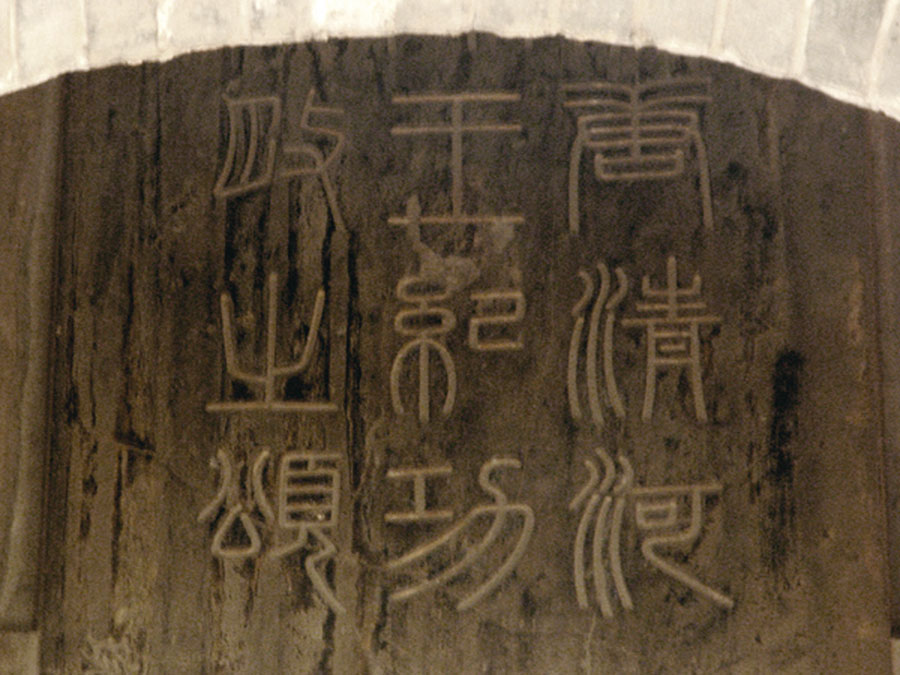 唐清河
王紀功
政之頌